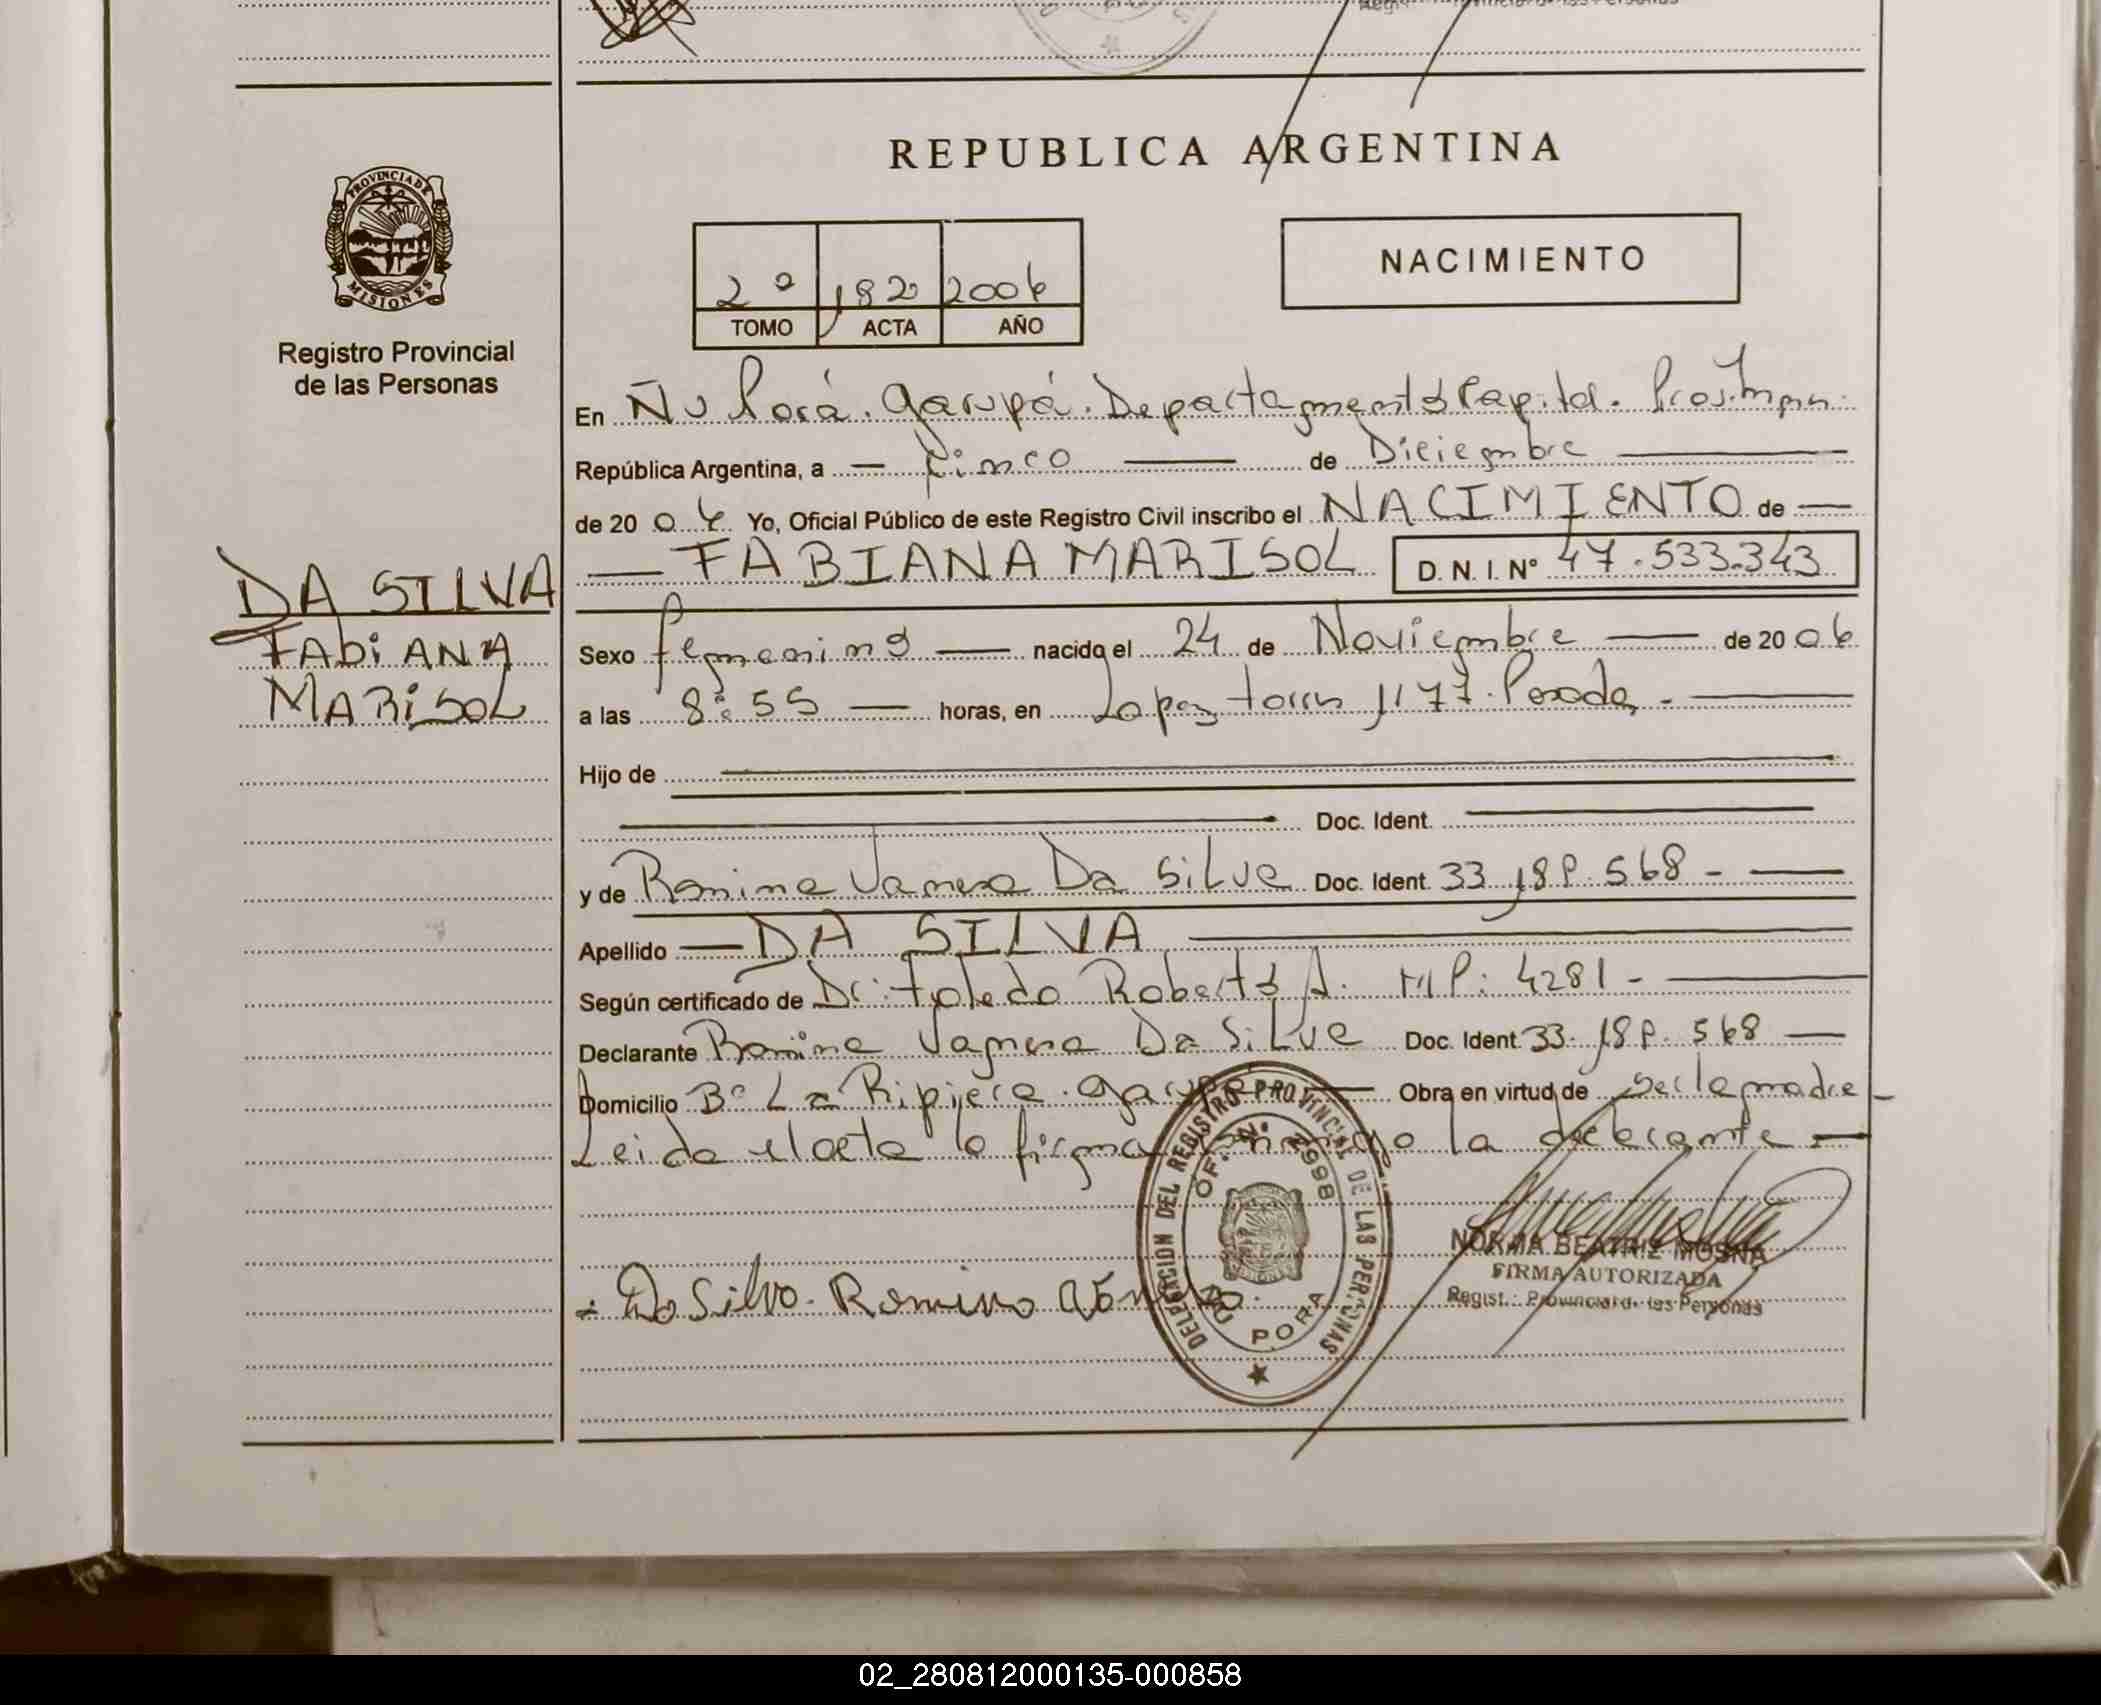 REPUBLICA ARGENTINA
PROVINCIA DE
MISIONES
Registro Provincial
de las Personas
2º 182 2006
TOMO ACTA AÑO
NACIMIENTO
En Ñu Porá. Garupá. Departamento Capital.
República Argentina, a — Cinco — de Diciembre —
de 20 06 Yo, Oficial Público de este Registro Civil inscribo el NACIMIENTO de —
— FABIANA MARISOL D.N.I. Nº 47.533.343
DA SILVA
FABiANA
MARiSOL
Sexo femenino — nacido el 24 de Noviembre — de 20 06
a las 8:55 — horas, en Lopez torres 1177. Posadas -
Hijo de
Doc. Ident.
y de Romina Vanesa Da Silva Doc. Ident. 33.189.568 - —
Apellido — DA SILVA
Según certificado de Dr: Toledo Roberto A. MP: 4281 -
Declarante Romina Vanesa Da Silva Doc. Ident. 33.189.568 —
Domicilio Bº La Ripiera. Garupá — Obra en virtud de ser la madre -
Leida el acta la firma conmigo la declarante —
DELEGACION DEL REGISTRO PROVINCIAL DE LAS PERSONAS
OF. Nº 2998
ÑU PORA
NORMA BEATRIZ MOSNA
FIRMA AUTORIZADA
Regist. Provincial de las Personas
- Da Silva Romina Vanesa.
02_280812000135-000858